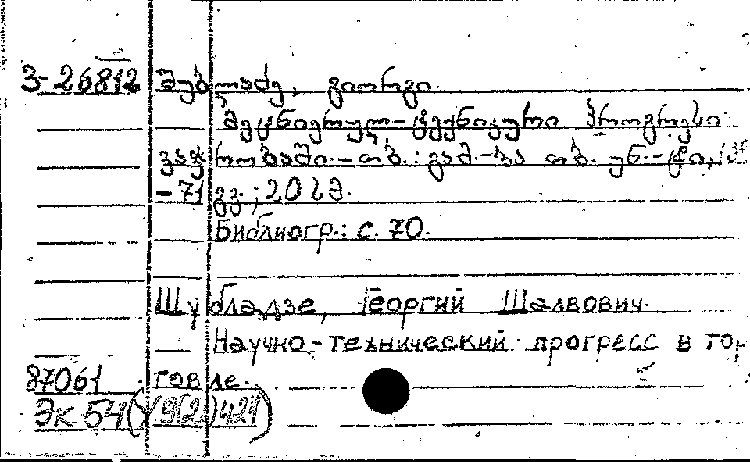 3-26812 შუბლაძე, გიორგი.
მეცნიერულ-ტექნიკური პროგრესი
ვაჭრობაში.-თბ.: გამ.-ბა თბ. უნ.-ტი,
-71 გვ.; 20 სმ.
Библиогр.: с. 70.
Шубладзе, Георгий Шалвович.
Научно-технический прогресс в тор-
87061 говле.
Эк 54()(92)421)